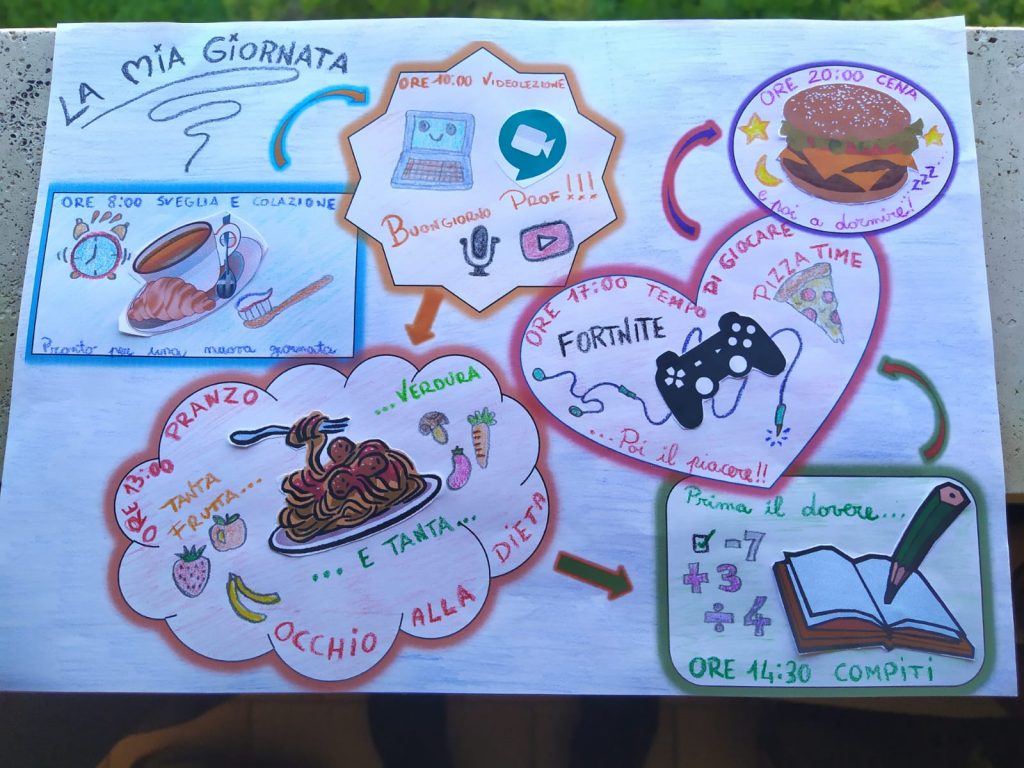 LA MIA GIORNATA
ORE 8:00 SVEGLIA E COLAZIONE
Pronto per una nuova giornata
ORE 10:00 VIDEOLEZIONE
BUONGIORNO PROF!!!
ORE 13:00 PRANZO
TANTA
FRUTTA...
... E TANTA...
...VERDURA
OCCHIO ALLA DIETA
Prima il dovere...
-7
+3
÷4
ORE 14:30 COMPITI
ORE 17:00 TEMPO DI GIOCARE
PIZZA TIME
FORTNITE
...Poi il piacere!!
ORE 20:00 CENA
zzz
e poi a dormire!!